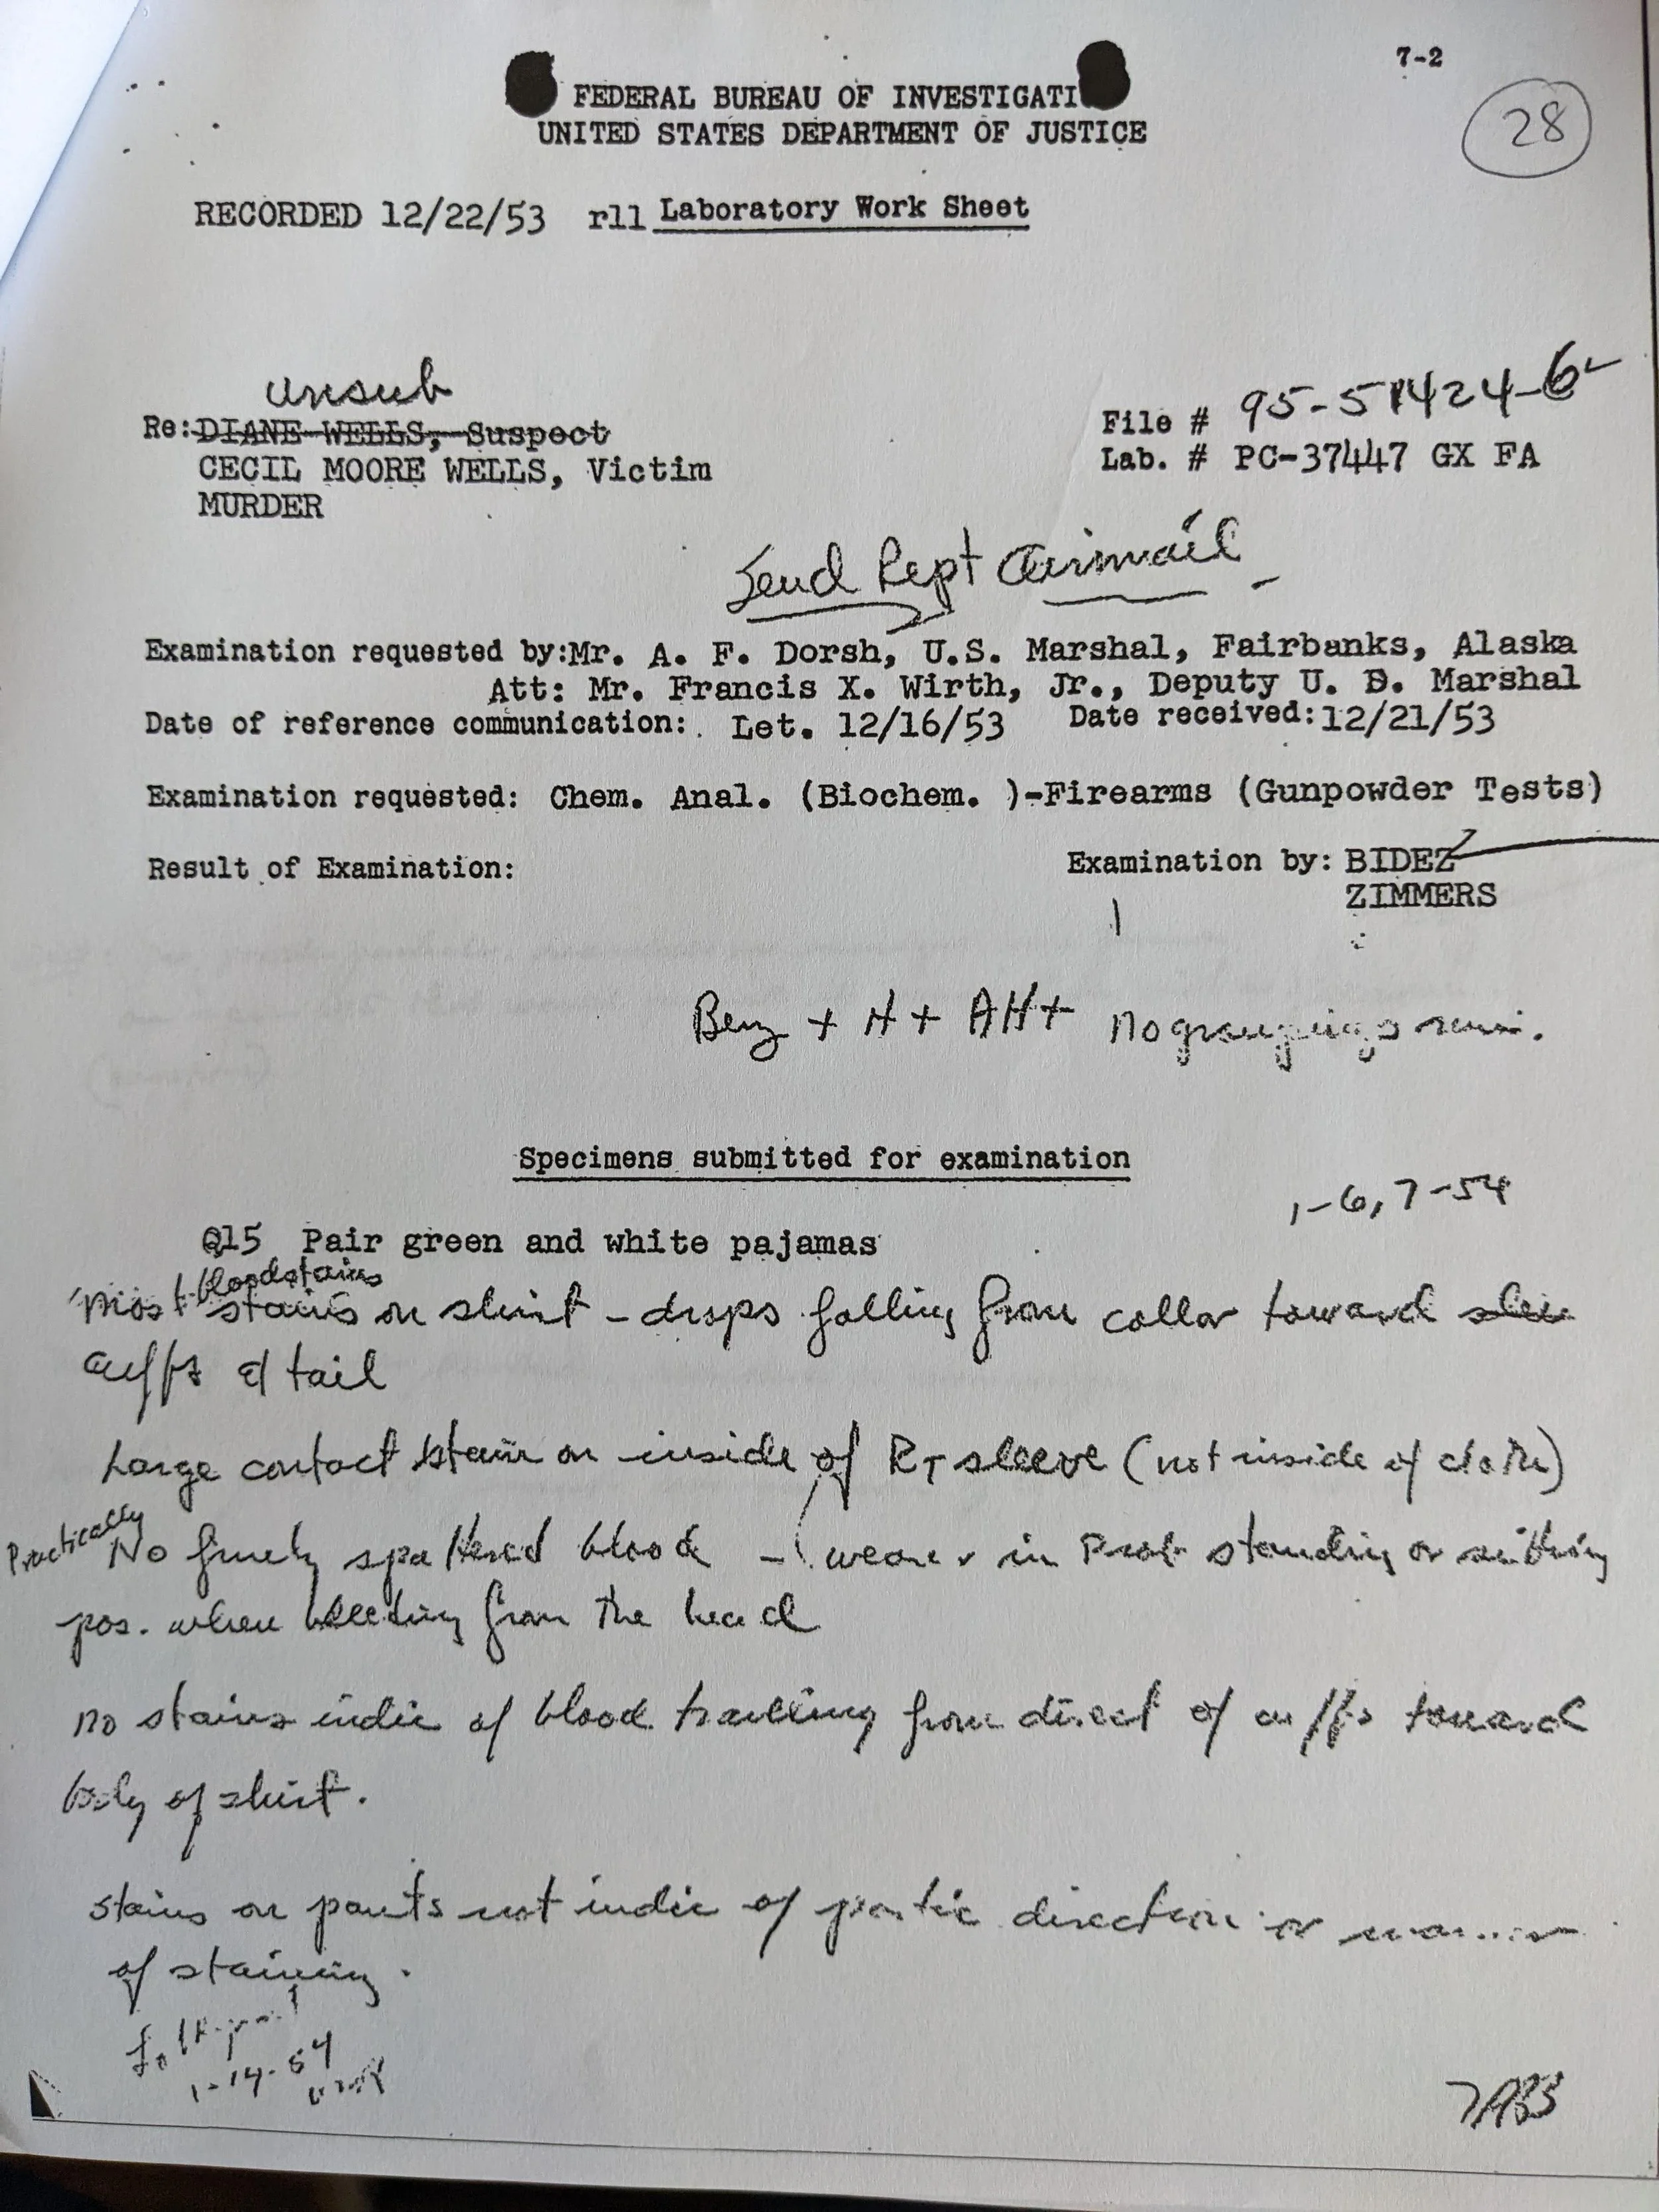 7-2
FEDERAL BUREAU OF INVESTIGATI
28
UNITED STATES DEPARTMENT OF JUSTICE
RECORDED 12/22/53 rll Laboratory Work Sheet
Unsub
Re: DIANE WELLS, Suspect
File # 95-51424-6
CECIL MOORE WELLS, Victim
Lab. # PC-37447 GX FA
MURDER
Send Rept Airmail
Examination requested by:Mr. A. F. Dorsh, U.S. Marshal, Fairbanks, Alaska
Att: Mr. Francis X. Wirth, Jr., Deputy U. S. Marshal
Date of reference communication: Let. 12/16/53 Date received:12/21/53
Examination requested: Chem. Anal. (Biochem. )-Firearms (Gunpowder Tests)
Result of Examination: Examination by: BIDEZ
ZIMMERS
Benz + H + AH+ No groupings
Specimens submitted for examination
1-6,7-54
Q15 Pair green and white pajamas
bloodstains
Most stains on shirt - drops falling from collar toward
cuffs & tail
Large contact stain on inside of RT sleeve (not inside of cloth)
Practically
No finely spattered blood - wearer in Prob standing or sitting
pos. when bleeding from the head
No stains indic of blood travelling from direct of cuffs toward
body of shirt.
Stains on pants not indic of partic direction or manner
of staining.
1-14-54